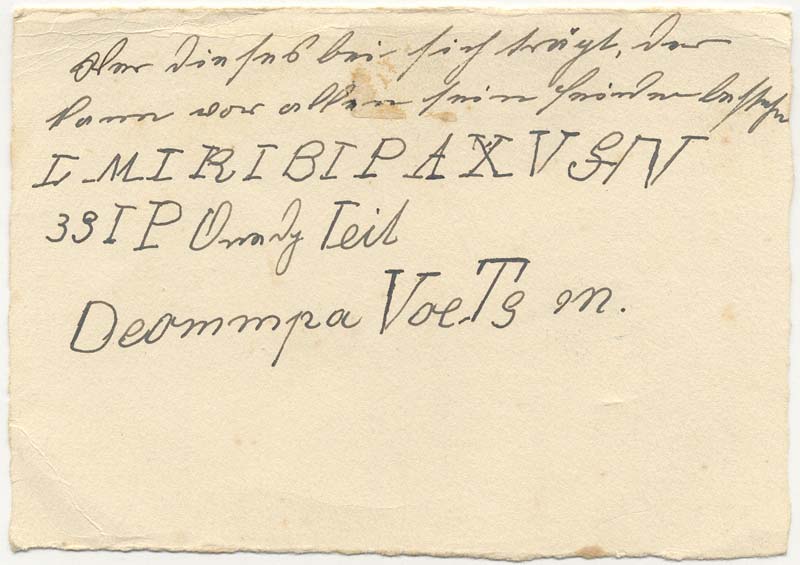 Wer dieses bei sich trägt, der
kann vor allen sein Feinden bestehn
L M I R I B I P A X V S IV
39 I P Teil
Deommpa VoeTs m.